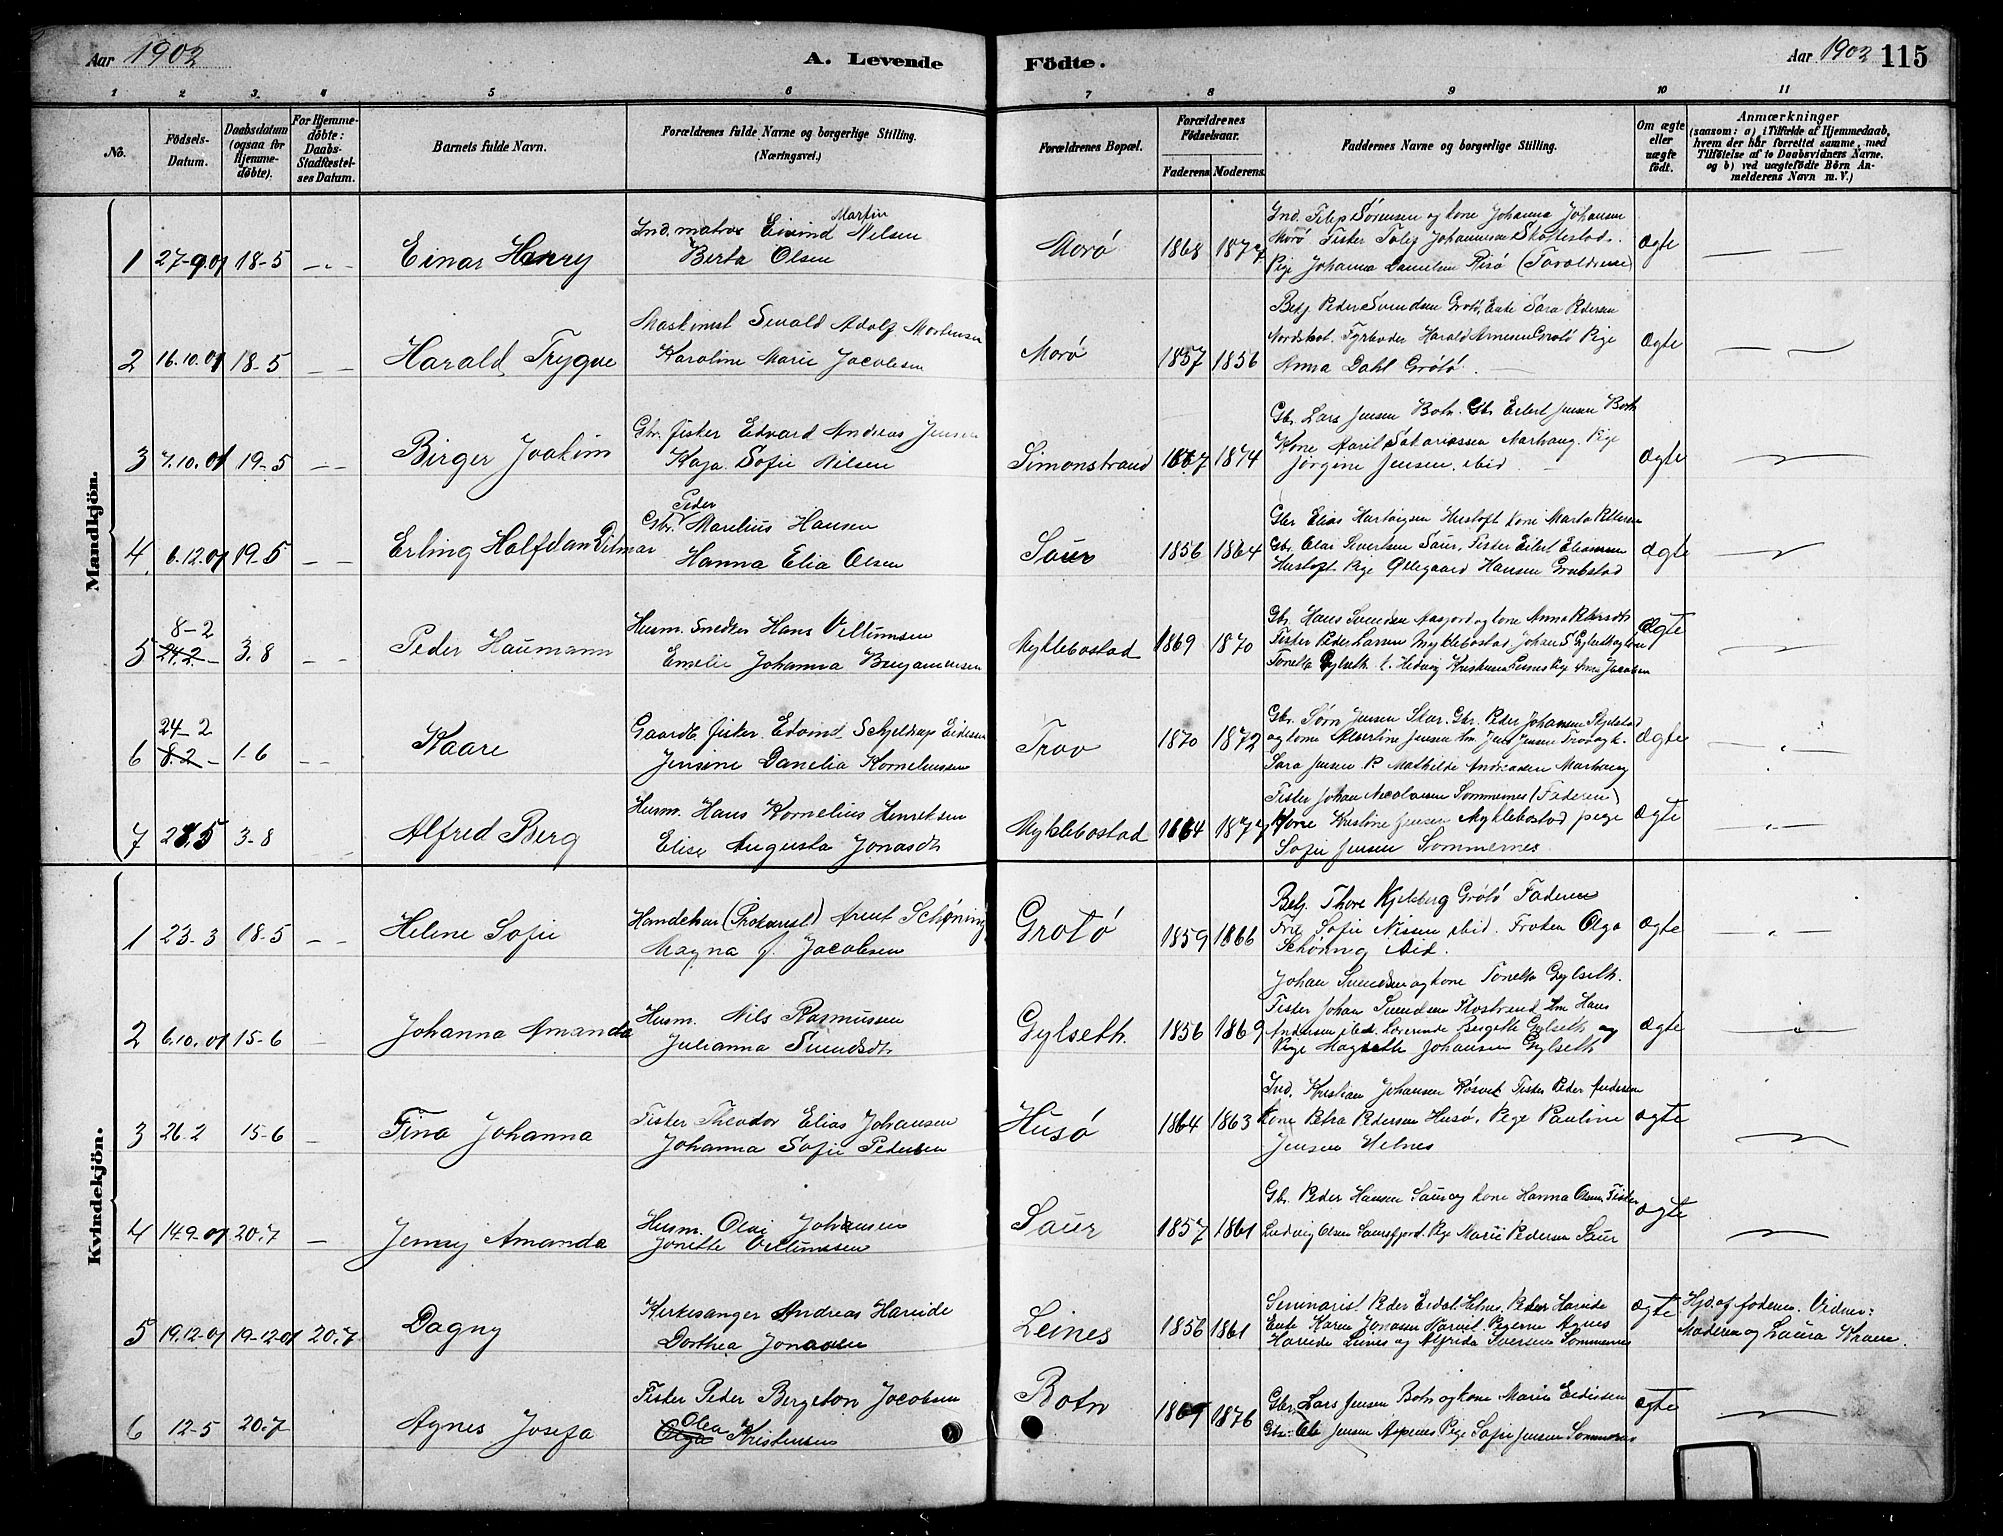 Aar 1902
A. Levende
Födte.
Aar 1902 115
1 2 3. 4 5 6 7 8 9 10 11
No.
Födsels-Datum.
Daabsdatum (ogsaa for Hjemme-döbte).
For Hjemme-döbte: Daabs-Stadfæstel-ses Datum.
Barnets fulde Navn.
Forældrenes fulde Navne og borgerlige Stilling.
(Næringsvei.)
Forældrenes Bopæl.
Forældrenes Födselsaar.
Faderens Moderens.
Faddernes Navne og borgerlige Stilling.
Om ægte eller uægte födt.
Anmærkninger
(saasom: a) i Tilfælde af Hjemmedaab,
hvem der har forrettet samme, med
Tilföielse af to Daabsvidners Navne,
og b) ved uægtefödte Börn An-
melderens Navn m. V.)
Mandkjön.
1 27-9.01 18-5 Einar Henry
Ind. matros Eivind Martin Nilsen
Berta Olsen
Morø 1868 1874
Ind. Filip Sörensen og kone Johanna Johansen
Morö Fisker Tolif Johannesen Skottestad.
Pige Johanna Danielsen Risø (Forældrene)
ægte
2 16.10.01 18-5 Harald Trygve
Maskinist Sivald Adolf Mortensen
Karoline Marie Jacobsen
Morø 1857 1856
Betj. Peder Svendsen Grötö, Enke Sara Pedersen
Nordskot. Fyrbøder Harald Arnesen Grötö Pige
Anna Dahl Grötö.
ægte
3 7.10.01 19-5 Birger Joakim
Gbr. fisker Edvard Andreas Jensen
Kaja Sofie Nilsen
Simonstrand 1867 1874
Gb. Lars Jensen Botn. Gbr Eilert Jensen Botn
Kone Marit Sakariassen Marhaug. Pige
Jörgine Jensen, ibid
ægte
4. 6.12.01 19-5 Erling Halfdan Hilmar
Gbr. Peder Marelius Hansen
Hanna Elia Olsen
Saur 1856 1864
Gbr Elias Hartvigsen Hustoft kone Marta Pettersen
Gb. Olai Sivertsen Saur, Fisker Eilert Eliassen
Hustoft Pige Ollegaard Hansen Grubstad
ægte
5 8-2 24.2 3.8 Peder Haumann
Husm. Smeder Hans Villumsen
Emelie Johanna Benjaminsen
Myklebostad 1869 1870
Gbr. Hans Svendsen Aasjord og kone Anna Petersdt
Fisker Peder Larsen Myklebostad Johan S Gylseth og kone
Tonetta Gylseth
ægte
6 24-2 8.2 1-6 Kaare
Gaardb. fisker Edvind Schjeldrup Eidissen
Jensine Danelia Kornelinssen
Trov 1870 1872
Gb. Sörn Jensen Skar. Gbr. Peder Johansen Skjelstad
og kone Albertine Jensen
Sara Jensen P. Mathilde Andreassen Marhaug
ægte
7 28.5 3-8 Alfred Berg
Husm. Hans Kornelius Henriksen
Elise Augusta Jonasdt
Myklebostad 1864 1877
Fisker Johan Nicolaisen Sommernes (Faderen)
Kone Kristine Jensen Myklebostad pige
Sofie Jensen Sommernes
ægte
Kvindekjön.
1 23-3 18-5 Helene Sofie
Handelsm (Prokurist) Arnt Schøning
Magna f. Jacobsen
Grotø 1859 1866
Betj. Thore Kjelsberg Grötö Faderen
Frk Sofie Nissen ibid. Frøken Olga
Schøning ibid.
ægte
2 6.10.01 15-6 Johanna Amanda
Husm. Nils Rasmussen
Julianna Svendsdt
Gylseth. 1856 1869
Johan Svendsen og kone Tonetta Gylseth.
Fisker Johan Svendsen Flostrand Hm Hans
Andersen ibid. Lærerinde Bergitte Gylseth og
Pige Magrethe Johansen Gylseth
ægte
3 26.2 15-6 Tina Johanna
Fisker Theodor Elias Johansen
Johanna Sofie Pedersen
Husø 1864 1863
Ind. Kristian Johansen Røsvik Fisker Peder Andersen
Kone Petra Pedersen Husø. Pige Pauline
Jensen Helnes
ægte
4 14.9-01 20.7 Jenny Amanda
Husm. Olai Johansen
Jonette Villumsen
Saur 1857 1861
Gb. Peder Hansen Saur og kone Hanna Olsen Fisker
Ludvig Olsen Saursfjord. Pige Marie Pedersen Saur
ægte
5 19.12-01 19-12-01 20.7 Dagny
Kirkesanger Andreas Hareide
Dorthea Jonassen
Leines 1856 1861
Seminarist Peder Eidal Helnes. Peder Hareide
Enke Karen Jonasen Narvik. Pigerne Agnes
Hareide Leines og Alfrida Iversen Sommernes
ægte
Hjd. af faderen. Vidner:
Moderen og Laura Khaen.
6 12-5 20.7 Agnes Josefa
Fisker Peder Bergeton Jacobsen
Olea Olga Kristensen
Botn 1869 1876
Gbr. Lars Jensen Botn og kone Maria Eidissen
Gbr. Ole Jensen Aspenes Pige Sofie Jensen Sommernes
ægte